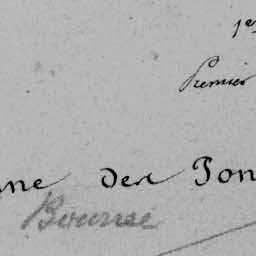 1er
Premier
ne des Fon
Bourse